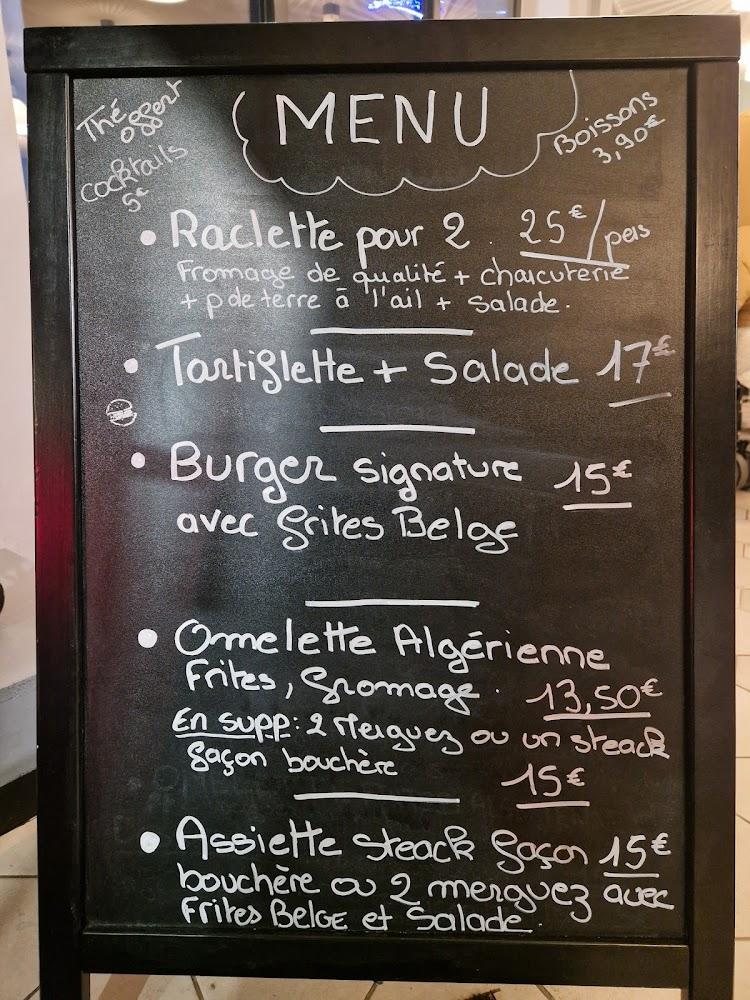 Thé
offert
cocktails
5€
MENU
Boissons
3,90€
• Raclette pour 2. 25€/pers
Fromage de qualité + charcuterie
+ p de terre à l'ail + salade.
• Tartiflette + Salade 17€
• Burger signature 15€
avec frites Belge
• Omelette Algérienne
Frites, fromage. 13,50€
En supp: 2 Merguez ou un steack
façon bouchère
15€
• Assiette steack façon 15€
bouchère ou 2 merguez avec
Frites BelgE et Salade.